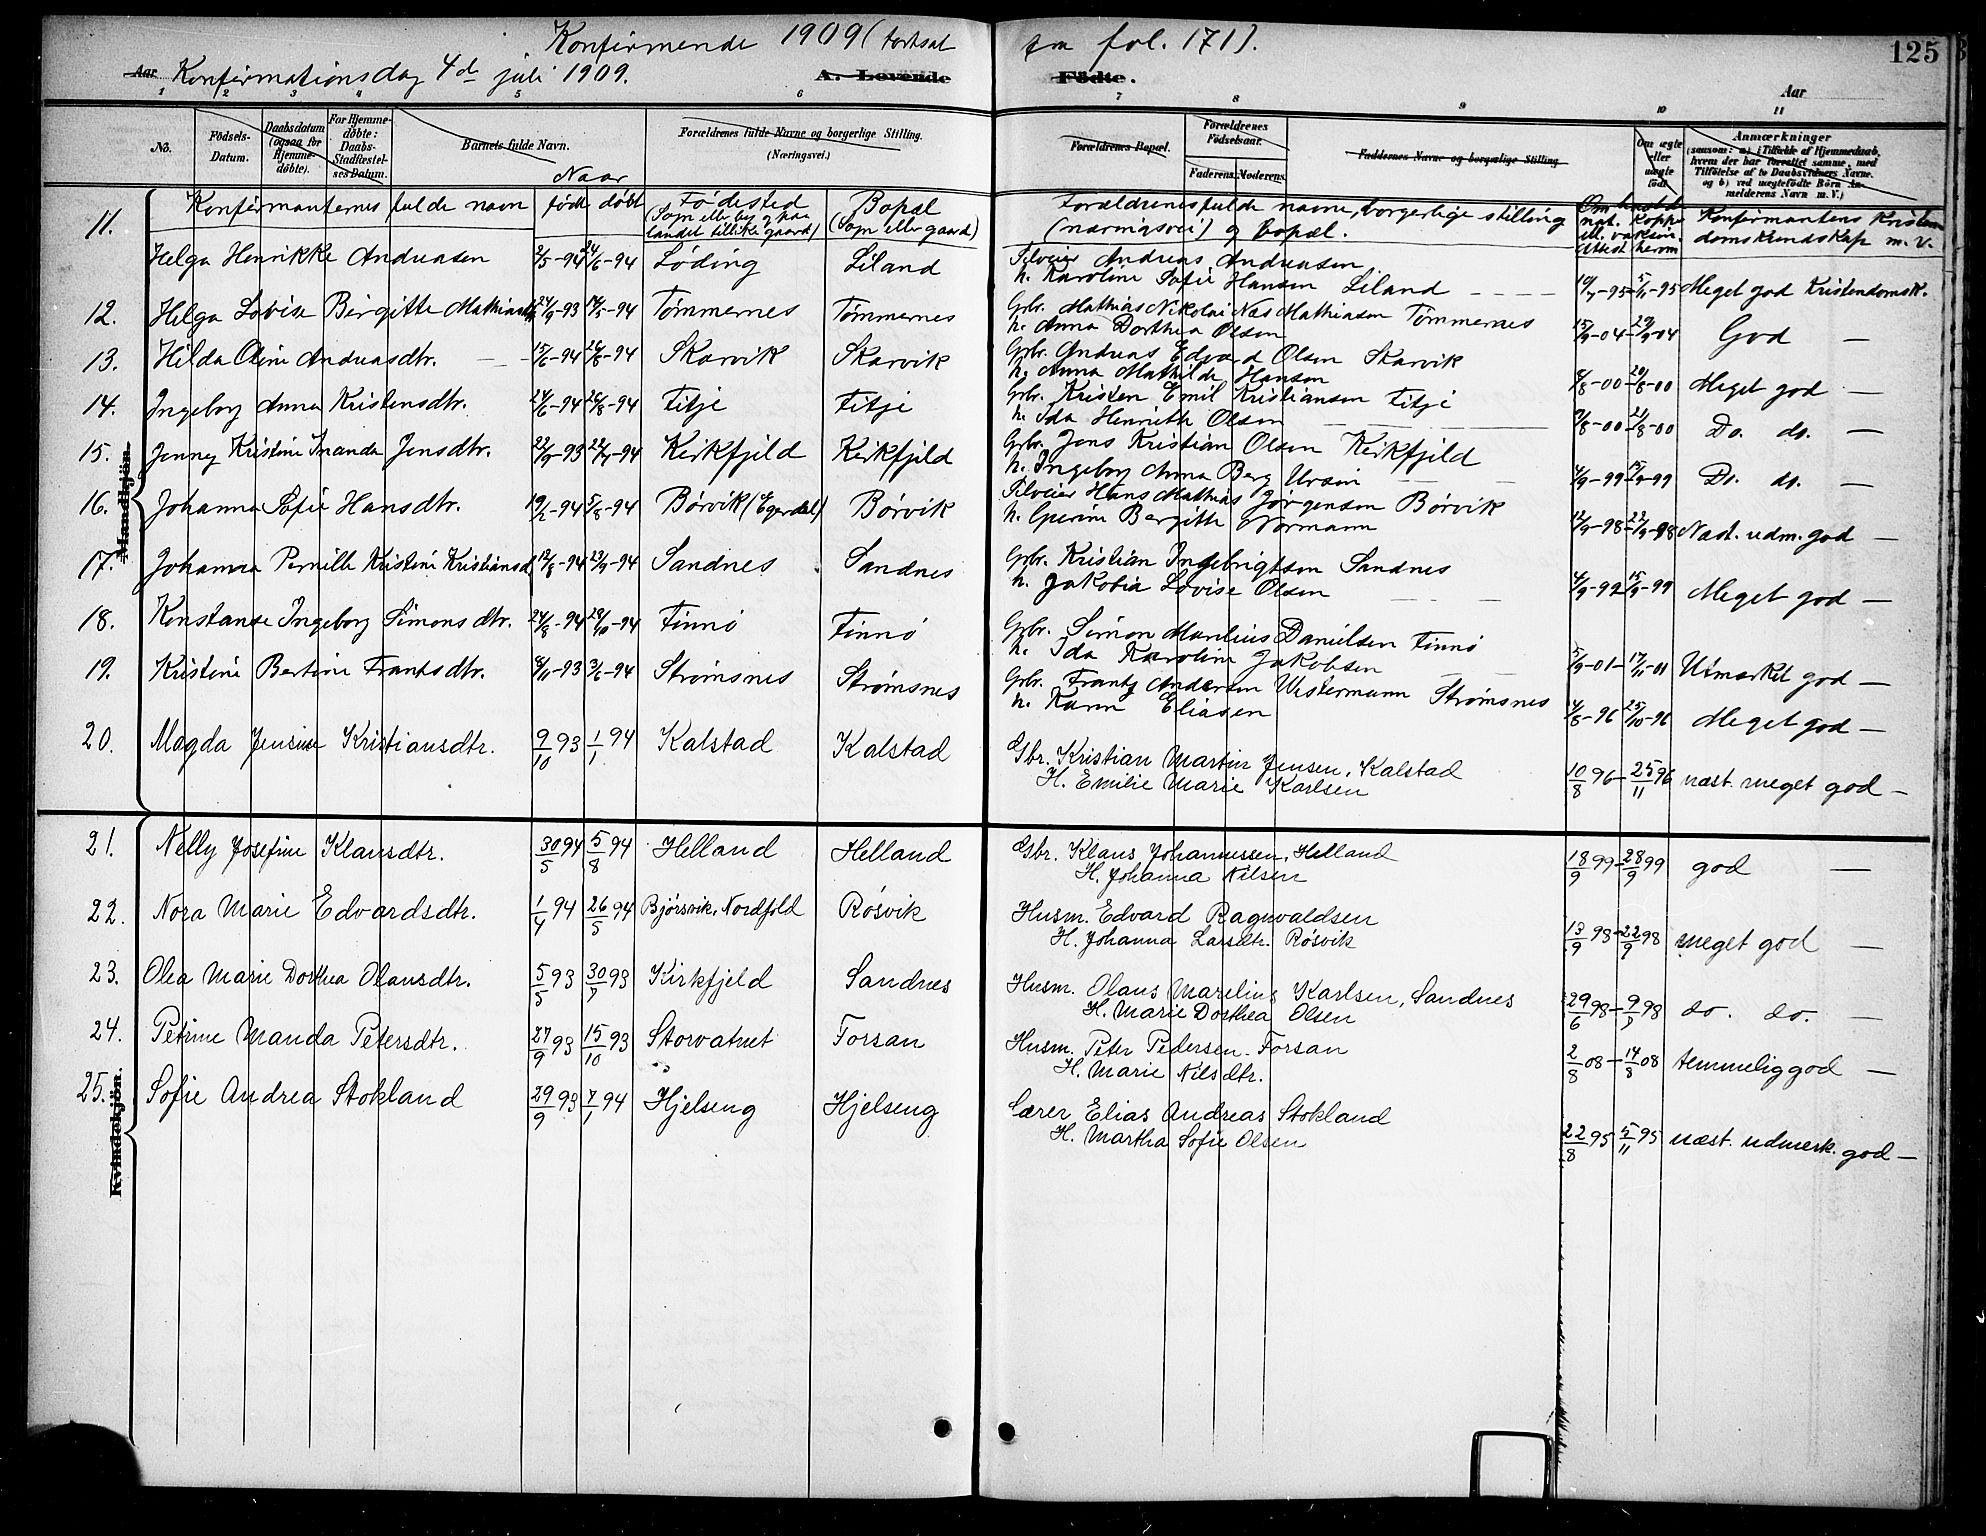 Konfirmende 1909 (fortsat fra fol. 171).
125
Aar Konfirmationsdag 4de juli 1909. A. Levende Födte. Aar
1 2 3 4 5 6 7 8 9 10 11
No. Födsels-Datum. Daabsdatum (ogsaa for Hjemme-döbte). For Hjemme-döbte: Daabs-Stadfæstel-ses Datum. Barnets fulde Navn. Forældrenes fulde Navne og borgerlige Stilling. (Næringsvei.) Forældrenes Bopæl. Forældrenes Födselsaar. Faderens. Moderens. Faddernes Navne og borgerlige Stilling Om ægte eller uægte födt. Anmærkninger (saasom: a) i Tilfælde af Hjemmedaab, hvem der har forrettet samme, med Tilföielse af to Daabsvidners Navne. og b) ved uægtefödte Börn Anmelderens Navn m.V.)
Naar
Konfirmanternes fulde navn født døbt Fødested (Sogn eller by og paa landet tillike gaard) Bopæl (Sogn eller gaard) Forældrenes fulde navne, borgerlige stilling (næringsvei) og bopæl. Om havt d. nat. koppe ell. vaksin. Attest herom Konfirmantens Kristendomskundskap m. v.
11. Helga Henrikke Andreasen 2/5-94 24/6-94 Løding Liland Filveier Andreas Andreasen
h. Karoline Sofie Hansen Liland 10/7-95 - 5/11-95 Meget god Kristendomsk.
12. Helga Lovise Birgitte Mathiasdtr. 24/9-93 14/5-94 Tømmernes Tømmernes Gbr. Mathias Nikolai Nas Mathiasen Tømmernes
h. Anna Dorthea Olsen 15/9-04 - 29/9-04 God —
13. Hilda Oline Andreasdtr. 15/6-94 26/8-94 Skarvik Skarvik Gbr. Andreas Edvard Olsen Skarvik
h. Anna Mathilde Hansen 8/8-00 - 20/8-00 Meget god —
14. Ingeborg Anna Kristensdtr. 24/6-94 26/8-94 Fitje Fitje Gbr. Kristen Emil Kristiansen Fitje
h. Ida Henriette Olsen 9/8-00 - 21/8-00 Do. do. —
15. Jenny Kristine Inanda Jensdtr. 22/9-93 22/4-94 Kirkfjeld Kirkfjeld Gbr. Jens Kristian Olsen Kirkfjeld
h. Ingeborg Anna Berg Ursin 4/9-99 - 15/9-99 Do. do. —
16. Johanna Sofie Hansdtr. 19/2-94 5/8-94 Børvik (Egerdal) Børvik Filveier Hans Mathias Jørgensen Børvik
h. Gurine Bergitte Normann 12/9-98 - 22/9-98 Næst. udm. god —
17. Johanna Pernille Kristine Kristiansd 12/8-94 23/9-94 Sandnes Sandnes Gbr. Kristian Ingebrigtsen Sandnes
h. Jakobia Lovise Olsen 4/9-99 - 15/9-99 Meget god —
18. Konstanse Ingeborg Simonsdtr. 24/8-94 28/10-94 Finnø Finnø Gbr. Simon Marelius Danielsen Finnø
h. Ida Karoline Jakobsen 5/9-01 - 17/11-01 Utmærket god —
19. Kristine Bertine Frantsdtr. 8/11-93 3/6-94 Strømsnes Strømsnes Gbr. Frants Andersen Westermann Strømsnes
h. Karen Eliasen 14/8-96 25/10-96 Meget god —
20. Magda Jensine Kristiansdtr. 9/10 93 1/1 94 Kalstad Kalstad Gbr. Kristian Martin Jensen, Kalstad
H. Emilie Marie Karlsen 10/8 96 - 25/11 96 næst. meget god —
Mandkjön.
21. Nelly Josefine Klausdtr. 30/5 94 5/8 94 Helland Helland Gbr. Klaus Johannessen, Helland
H. Johanna Nilsen 18/9 99 - 28/9 99 god —
22. Nora Marie Edvardsdtr. 1/4 94 26/5 94 Bjørsvik, Nordfold Røsvik Husm. Edvard Ragnvaldsen
H. Johanna Larsdtr. Røsvik 13/9 98 - 22/9 98 meget god —
23. Olea Marie Dorthea Olausdtr. 5/5 93 30/7 93 Kirkfjeld Sandnes Husm. Olaus Marelius Karlsen, Sandnes
H. Marie Dorthea Olsen 29/6 98 - 9/7 98 do. do. —
24. Petrine Wanda Petersdtr. 27/9 93 15/10 93 Storvatnet Forsan Husm. Peter Pedersen - Forsan
H. Marie Nilsdtr. 2/8 08 - 14/8 08 temmelig god —
25. Sofie Andrea Stokland 29/9 93 7/1 94 Hjelseng Hjelseng Lærer Elias Andreas Stokland
H. Martha Sofie Olsen 22/8 95 5/11 95 næst. udmerk. god —
Kvindekjön.